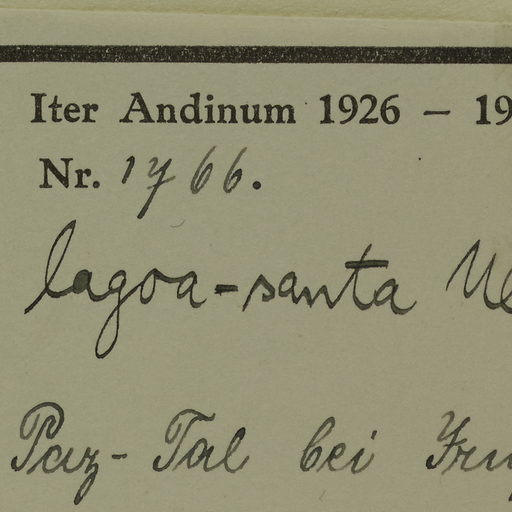 Iter Andinum 1926 – 19
Nr. 1766.
lagoa-santa
Paz-Tal bei